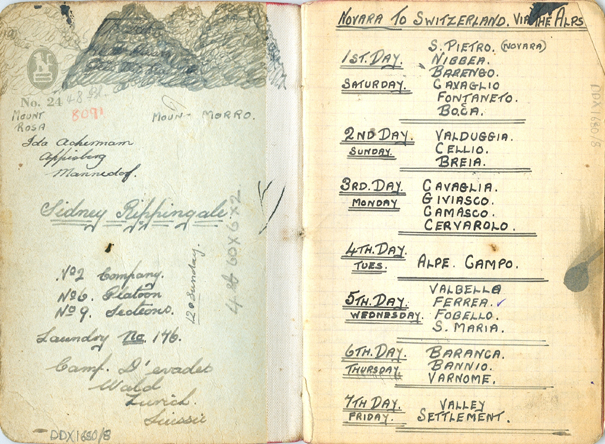 No. 24
8091
MOUNT
ROSA
MOUN- MORRO.
Ida Ackermam
Appisberg
Mannedof.
Sidney Rippingale
No 2 Company.
No 6. Platoon
No 9. Sections.
Laundry No 176.
Camp. D'evadet
Wald
Zurich.
Suissie
12 o Sunday.
DDX1680/8
NOVARA TO SWITZERLAND. VIA THE ALPS
1ST. DAY.
SATURDAY
S. PIETRO. (NOVARA)
NIBBEA.
BARENGO.
CAVAGLIO
FONTANETO.
BOCA.
2ND. DAY.
SUNDAY
VALDUGGIA.
CELLIO.
BREIA.
3RD. DAY.
MONDAY
CAVAGLIA.
GIVIASCO.
CAMASCO.
CERVAROLO.
4TH. DAY
TUES.
ALPE. CAMPO.
5TH. DAY.
WEDNESDAY.
VALBELLA
FERREA.
FOBELLO.
S. MARIA.
6TH. DAY.
THURSDAY
BARANCA.
BANNIO.
VARNOME.
7TH DAY
FRIDAY.
VALLEY
SETTLEMENT.
DDX1680/8